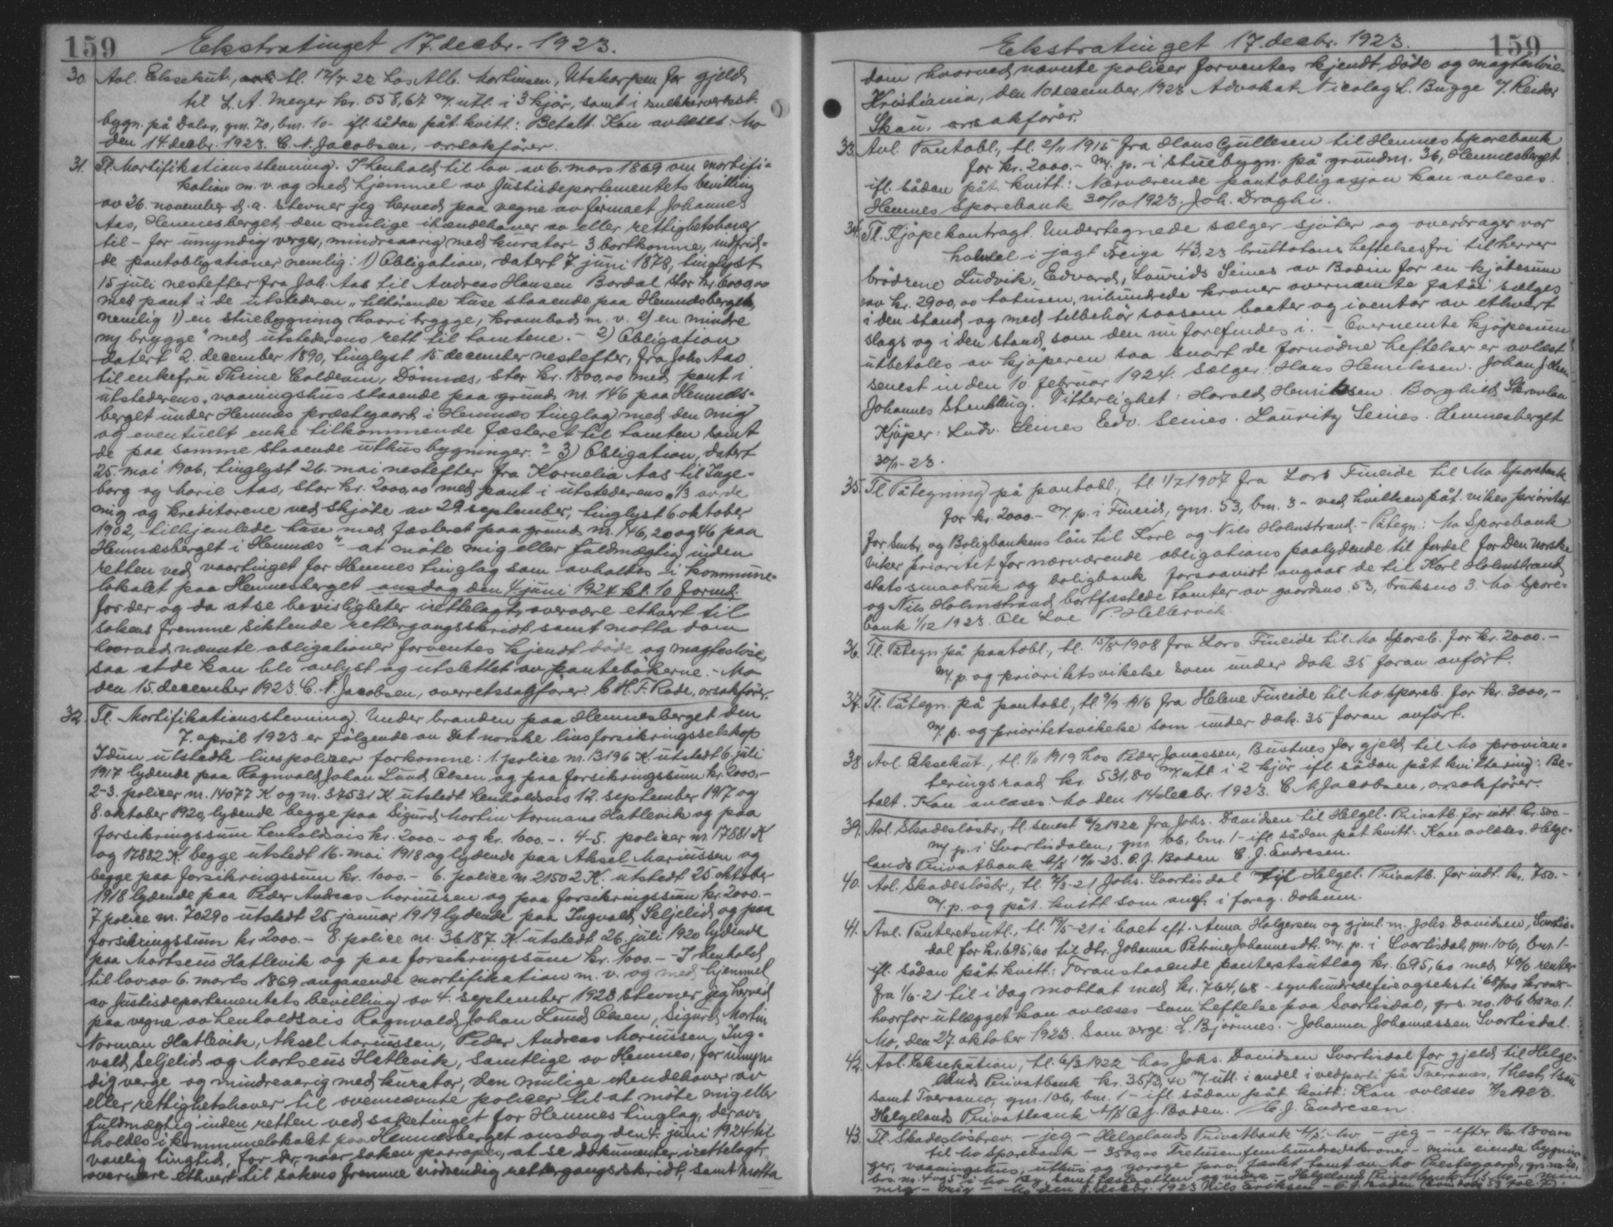 159 Ekstratinget 17. decbr. 1923.
30. Avl. Eksekut., tl. 12/7-22 hos Alb. Mortinsen, Utskarpen for gjeld
til L.A. Meyer kr. 558,67 m/ utl. i 3 kjør, samt i snekkerverkst.
bygn. på Dalos, gm. 70, bm. 10 - ifl. sådan påt. kvitt: Betalt. Kan avleses. Mo
den 14 decbr. 1923. C. N. Jacobsen, orsakfører.
31. Tl. Mortifikationsstevning. I henhold til lov av 6. mars 1869 om mortifi-
kation m.v. og med hjemmel av Justisdepartementets bevilling
av 26. november d.a. stevner jeg herved paa vegne av firmaet Johannes
Aas, Hemnesberget den mulige ihændehaver av eller rettighetshaver
til - for umyndig verge, mindreaarig med kurator 3 bortkomne, indfrid-
de pantobligationer nemlig: 1) Obligation, datert 7 juni 1878, tinglyst
15 juli nestefter fra Joh. Aas til Andreas Hansen Bordal stor kr. 6000,00
med pant i de utstederen "tilhørende huse staaende paa Hemnesberget,
nemlig 1) en stuebygning hvori brygge, krambod m.v. 2) en mindre
ny brygge" med utstederens rett til tomtene. - 2) Obligation
datert 2. december 1890, tinglyst 15 december nestefter, fra Johs Aas
til enkefru Thrine Coldevin, Dønnæs, stor kr. 1800,00 med pant i
utstederens "vaaningshus staaende paa grund nr. 146 paa Hemnes-
berget under Hemnes præstegaard i Hemnæs tinglag med den mig
og eventuelt enke tilkommende fæsteret til tomten samt
de paa samme staaende uthusbygninger." 3) Obligation, datert
25. mai 1906, tinglyst 26. mai nestefter fra Kornelia Aas til Inge-
borg og Marie Aas, stor kr. 2000,00 med pant i utstederens "1/3 av de
mig og kreditorene ved skjøte av 29. september, tinglyst 6 oktober
1902, tilhjemlede huse med fæsteret paa grund nr. 146, 20 og 46 paa
Hemnæsberget i Hemnæs" - at møte mig eller fuldmægtig inden
retten ved vaartinget for Hemnes tinglag som avholdes i kommune-
lokalet paa Hemnesberget onsdag den 4 juni 1924 kl. 10 formd.
for der og da at se bevisligheter irettelagt, overvære ethvert til
sakens fremme siktende rettergangsskridt samt motta dom
hvorved nævnte obligationer forventes kjendt døde og magtesløse,
saa at de kan bli avlyst og utslettet av pantebøkerne. - Mo
den 15. december 1923. C. N. Jacobsen, overretssagfører. C. H. F. Rode, orsakfører.
32. Tl. Mortifikationsstevning. Under branden paa Hemnesberget den
7. april 1923 er følgende av Det norske livsforsikringsselskap
Idun utstedte livspoliser forkomne: 1. police nr. 13196 K. utstedt 6 juli
1917 lydende paa Ragnvald Johan Lund Olsen og paa forsikringssum kr. 2000.-
2-3. policer nr. 14077 K og nr. 37531 K utstedt henholdsvis 12. september 1917 og
8. oktober 1920, lydende begge paa Sigurd Martin Norman Hatlevik og paa
forsikringssum henholdsvis kr. 2000.- og kr. 1000.-. 4-5. policer nr. 17881 K
og 17882 K. begge utstedt 16. mai 1918 og lydende paa Aksel Mariussen og
begge paa forsikringssum kr. 1000.- 6. police nr. 21502 K. utstedt 25 oktober
1918 lydende paa Peder Andreas Mariussen og paa forsikringssum kr. 2000.-
7 police nr. 70290 utstedt 25. januar 1919 lydende paa Ingvald Seljelid og paa
forsikringssum kr 2000.- 8. police nr. 36187 K. utstedt 26. juli 1920 lydende
paa Martseus Hatlevik og paa forsikringssum kr. 1000.- I henhold
til lov av 6. marts 1869 angaaende mortifikation m.v. og med hjemmel
av Justisdepartementets bevilling av 4. september 1923 stevner jeg herved
paa vegne av henholdsvis Ragnvald Johan Lund Olsen, Sigurd Martin
Norman Hatlevik, Aksel Mariussen, Peder Andreas Mariussen, Ing-
vald Seljelid og Martseus Hatlevik, samtlige av Hemnes, for umyn-
dig verge og mindreaarig med kurator, den mulige ihendehaver av
eller rettighetshaver til ovennevnte policer til at møte mig eller
fuldmægtig inden retten ved saketinget for Hemnes tinglag, der av-
holdes i kommunelokalet paa Hemnesberget onsdag den 4. juni 1924 til
vanlig tingtid, for der, naar saken paaropes, at se dokumenter irettelagt,
overvære ethvert til sakens fremme nødvendig rettergangsskridt, samt motta
Ekstratinget 17. decbr. 1923. 159
dom hvorved nævnte policer forventes kjendt døde og magtesløse.
Kristiania, den 10 december 1923 Advokat Nicolay L. Bugge v/ Reidar
Skau, orsakfører
33. Avl. Pantobl., tl. 2/11 1915 fra Hans Gullesen til Hemnes Sparebank
for kr. 2000.- m/ p. i stuebygn. på grundnr. 36, Hemnesberget
ifl. sådan påt. kvitt: Nærværende pantobligasjon kan avleses.
Hemnes Sparebank 30/10 1923. Joh. Draghi.
34. Tl. Kjøpekontragt. Undertegnede sælger sjøter og overdrager vor
halvdel i jagt Freiya 43,23 bruttotons heftelsesfri til herrer
brødrene Ludvik, Edvard, Laurids Seines av Bodin for en kjøpesum
av kr. 2900,00 totusen, nihundrede kroner overnævnte fatøi sælges
i den stand og med tilbehør saasom baater og iventar av ethvert
slags og i den stand, som den nu forefindes i. - Overnemte kjøpesum
utbetales av kjøperen saa snart de fornødne heftelser er avløst
senest inden 10 februar 1924. Sælger: Hans Henriksen. Johan
Johannes Stenkling. Vitterlighet: Harald Henriksen. Borghild
Kjøper: Ludv. Seines Edv. Seines. Lauritz Seines. Hemnesberget
30/11-23.
35. Tl. Påtegning på pantobl., tl. 1/7 1907 fra Lars Fineide til Mo Sparebank
for kr. 2000.- m/ p. i Fineid, gnr. 53, bnr. 3 - ved hvilken påt. vikes prioritet
for Småbr. og Boligbankens lån til Karl og Nils Holmstrand. - Påtegn: Mo Sparebank
viker prioritet for nærværende obligations paalydende til fordel for Den norske
stats smaabruk og boligbank forsaavidt angaar de til Karl Holmstrand
og Nils Holmstrand bortfæstede tomter av gaardsno 53, bruksno 3. Mo Spare-
bank 1/12 1923. Ole Loe P. Hellervik
36. Tl. Påtegn. på pantobl., tl. 15/8 1908 fra Lars Fineide til Mo Spareb. for kr. 2000.-
m/ p. og prioritetsvikelse som under dok 35 foran anført.
37. Tl. Påtegn. på pantobl., tl. 9/9 1916 fra Helene Fineide til Mo Spareb. for kr. 3000,-
m/ p. og prioritetsvikelse som under dok. 35 foran anført.
38 Avl. Eksekut., tl. 1/6 1919 hos Peder Jonassen, Bustnes for gjeld til Mo provian-
teringsraad kr. 531,80 m/ utl i 2 kjør ifl. sådan påt kvittering: Be-
talt. Kan avleses. Mo den 14 decbr. 1923. C. N. Jacobsen, orsakfører.
39. Avl. Skadesløsbr., tl. senest 6/2 1922 fra Johs. Davidsen til Helgel. Privatb. for indt. kr. 500.-
m/ p. i Svartisdalen, gnr. 106, bnr. 1 - ifl. sådan påt. kvitt: Kan avleses. Helge-
lands Privatbank A/S -23. C. J. Baden E. J. Endresen.
40. Avl. Skadesløsbr., tl. -21 Johs. Svartisdal til Helgel. Privatb. for indt. kr. 750.-
m/ p. og påt. kvitt som anf. i foreg. dokum.
41. Avl. Panteretsutl., tl. -21 i boet eft. Anna Halgersen og gjenl. m. Johs. Davidsen, Svartis-
dal for kr. 695,60 til dtr. Johanna Petrine Johannesdtr. m/ p. i Svartisdal, gnr. 106, bnr. 1 -
ifl. sådan påt. kvitt: Foranstaaende panteretsutlæg kr. 695,60 med 4% renter
fra 1/6-21 til i dag mottat med kr. 764,68 - syvhundredefireogseksti 68/100 kroner -
hvorfor utlegget kan avleses - som heftelse paa Svartisdal, grs. no. 106 brs. no. 1.
Mo, den 27. oktober 1923. Som verge: L. Bjørnnes. - Johanna Johannessen Svartisdal.
42. Avl. Eksekution, tl. 6/3 1922 hos Johs. Davidsen Svartisdal for gjeld til Helge-
lands Privatbank kr. 3573,40 m/ utl. i andel i vedparti på Tverånes, 1 hest,
samt Tveraanes, gnr. 106, bnr. 1 - ifl. sådan påt. kvitt: Kan avleses 1923.
Helgelands Privatbank A/S C. J. Baden. E. J. Endresen
43. Tl. Skadesløsbrev - jeg - Helgelands Privatbank A/S. Mo - jeg - efter
til Mo Sparebank - 3500,00 Tretusenfemhundredekroner - mine eiende bygnin-
ger, vaaningshus, uthus og garage paa fæstet tomt av Mo Prestegaard, grs. no. 20,
mig - mig - Mo den decbr. 1923 Nils Eriksen - C. J. Baden